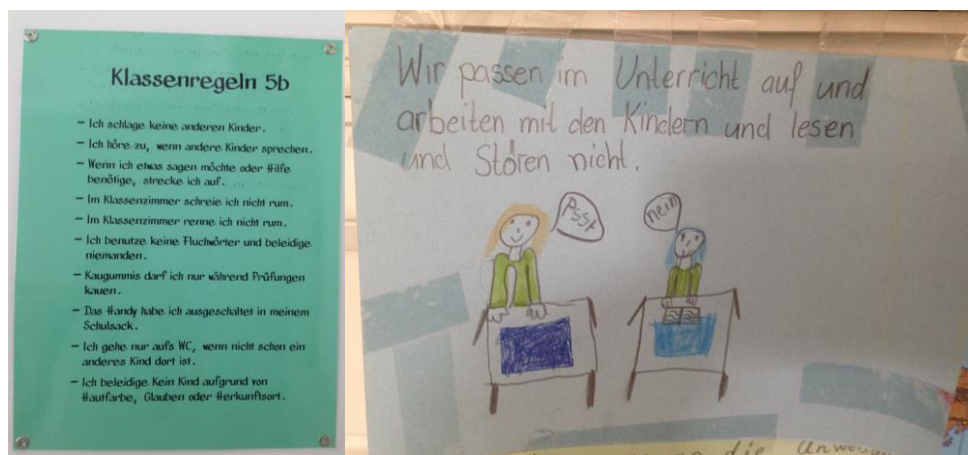 Klassenregeln 5b
- Ich schlage keine anderen Kinder.
- Ich höre zu, wenn andere Kinder sprechen.
- Wenn ich etwas sagen möchte oder Hilfe
benötige, strecke ich auf.
- Im Klassenzimmer schreie ich nicht rum.
- Im Klassenzimmer renne ich nicht rum.
- Ich benutze keine Fluchwörter und beleidige
niemanden.
- Kaugummis darf ich nur während Prüfungen
kauen.
- Das Handy habe ich ausgeschaltet in meinem
Schulsack.
- Ich gehe nur aufs WC, wenn nicht schon ein
anderes Kind dort ist.
- Ich beleidige Kein Kind aufgrund von
Hautfarbe, Glauben oder Herkunftsort.
Wir passen im Unterricht auf und
arbeiten mit den Kindern und lesen
und Stören nicht.
Psst
nein
die